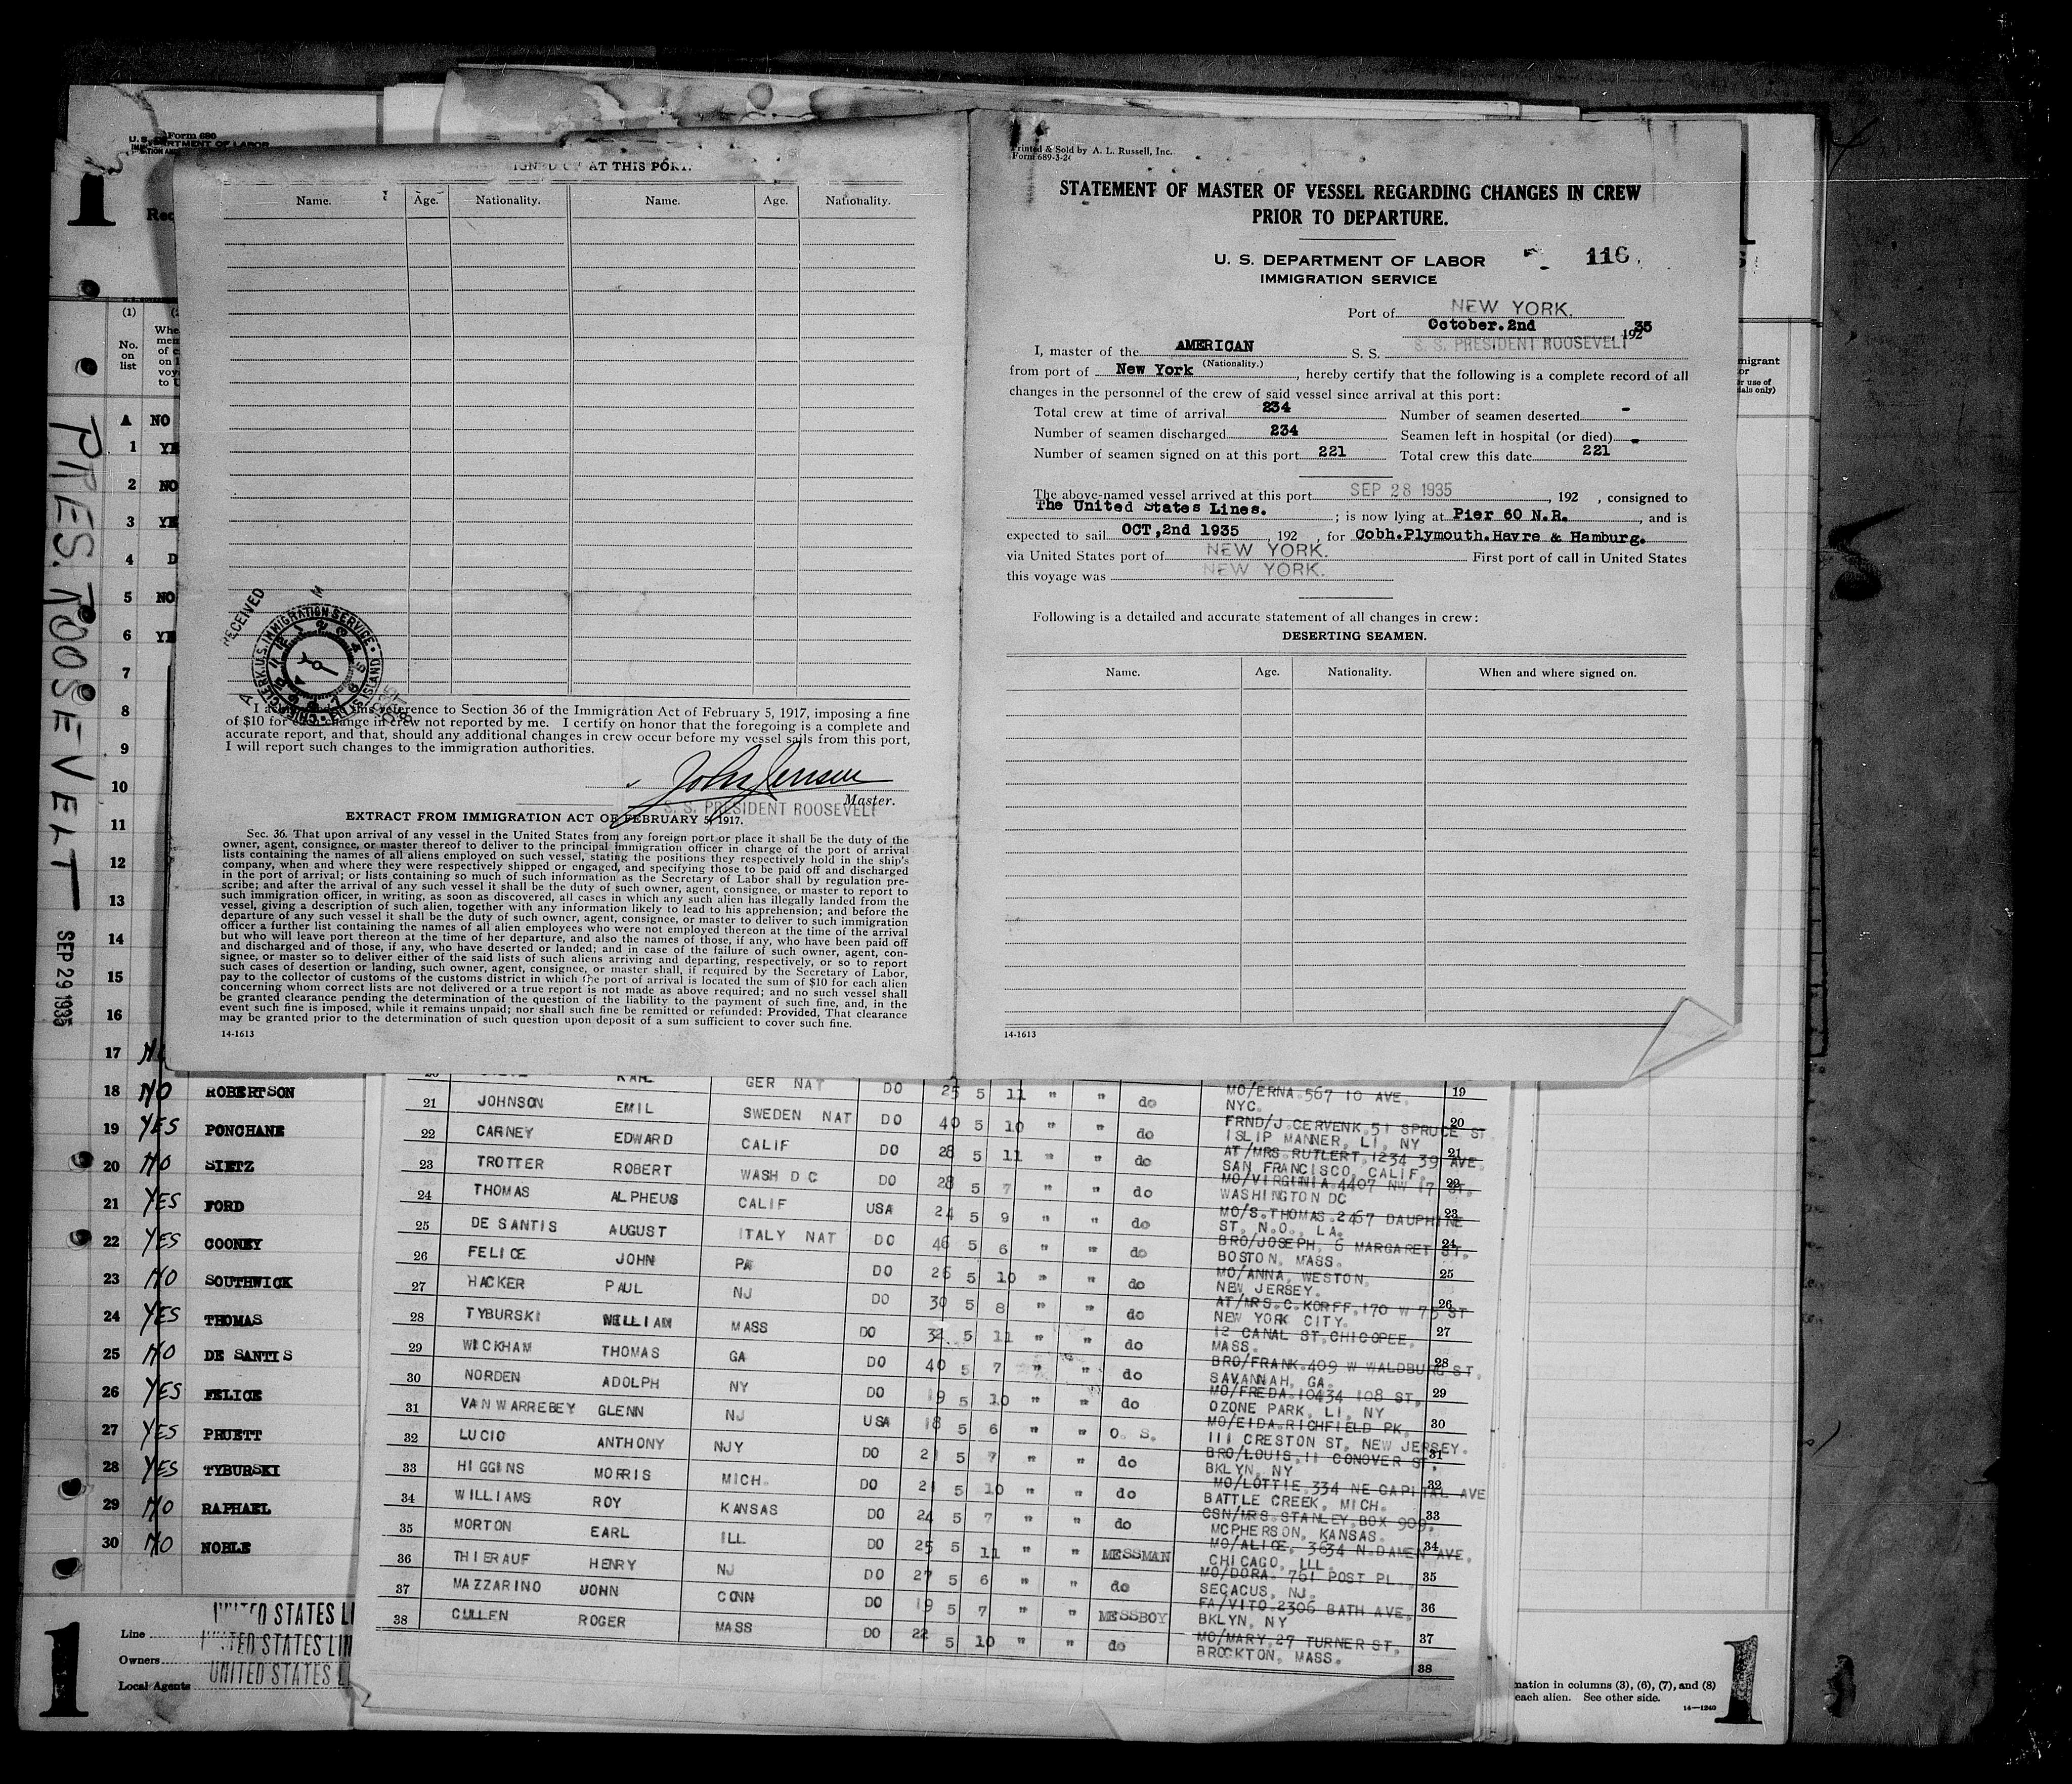 Form 680
U. S. DEPARTMENT OF LABOR
1
(1)
No.
on
list
A NO
1
2 NO
3
4 D
5 NO
6
7
8
9
10
11
12
13
14
15
16
17
18 NO ROBERTSON
19 YES PONCHANE
20 NO SIETZ
21 YES FORD
22 YES COONEY
23 NO SOUTHWICK
24 YES THOMAS
25 NO DE SANTIS
26 YES FELICE
27 YES PRUETT
28 YES TYBURSKI
29 NO RAPHAEL
30 NO NOBLE
PRES. ROOSEVELT
SEP 29 1935
Line
Owners
Local Agents
UNITED STATES LI
UNITED STATES LIN
UNITED STATES L
1
AT THIS PORT.
Name. Age. Nationality. Name. Age. Nationality.
RECEIVED
IMMIGRATION SERVICE
ISLAND
I acknowledge this reference to Section 36 of the Immigration Act of February 5, 1917, imposing a fine
of $10 for each change in crew not reported by me. I certify on honor that the foregoing is a complete and
accurate report, and that, should any additional changes in crew occur before my vessel sails from this port,
I will report such changes to the immigration authorities.
John Jensen
Master.
S. S. PRESIDENT ROOSEVELT
EXTRACT FROM IMMIGRATION ACT OF FEBRUARY 5, 1917.
Sec. 36. That upon arrival of any vessel in the United States from any foreign port or place it shall be the duty of the
owner, agent, consignee, or master thereof to deliver to the principal immigration officer in charge of the port of arrival
lists containing the names of all aliens employed on such vessel, stating the positions they respectively hold in the ship's
company, when and where they were respectively shipped or engaged, and specifying those to be paid off and discharged
in the port of arrival; or lists containing so much of such information as the Secretary of Labor shall by regulation pre-
scribe; and after the arrival of any such vessel it shall be the duty of such owner, agent, consignee, or master to report to
such immigration officer, in writing, as soon as discovered, all cases in which any such alien has illegally landed from the
vessel, giving a description of such alien, together with any information likely to lead to his apprehension; and before the
departure of any such vessel it shall be the duty of such owner, agent, consignee, or master to deliver to such immigration
officer a further list containing the names of all alien employees who were not employed thereon at the time of the arrival
but who will leave port thereon at the time of her departure, and also the names of those, if any, who have been paid off
and discharged and of those, if any, who have deserted or landed; and in case of the failure of such owner, agent, con-
signee, or master so to deliver either of the said lists of such aliens arriving and departing, respectively, or so to report
such cases of desertion or landing, such owner, agent, consignee, or master shall, if required by the Secretary of Labor,
pay to the collector of customs of the customs district in which the port of arrival is located the sum of $10 for each alien
concerning whom correct lists are not delivered or a true report is not made as above required; and no such vessel shall
be granted clearance pending the determination of the question of the liability to the payment of such fine, and, in the
event such fine is imposed, while it remains unpaid; nor shall such fine be remitted or refunded: Provided, That clearance
may be granted prior to the determination of such question upon deposit of a sum sufficient to cover such fine.
14-1613
Printed & Sold by A. L. Russell, Inc.
Form 689-3-24
STATEMENT OF MASTER OF VESSEL REGARDING CHANGES IN CREW
PRIOR TO DEPARTURE.
U. S. DEPARTMENT OF LABOR
IMMIGRATION SERVICE
116
Port of NEW YORK.
October.2nd , 192 35
I, master of the AMERICAN S. S. S. S. PRESIDENT ROOSEVELT
(Nationality.)
from port of New York , hereby certify that the following is a complete record of all
changes in the personnel of the crew of said vessel since arrival at this port:
Total crew at time of arrival 234 Number of seamen deserted -
Number of seamen discharged 234 Seamen left in hospital (or died) -
Number of seamen signed on at this port 221 Total crew this date 221
The above-named vessel arrived at this port SEP 28 1935 , 192 , consigned to
The United States Lines. ; is now lying at Pier 60 N.R. , and is
expected to sail OCT,2nd 1935 , 192 , for Cobh.Plymouth.Havre & Hamburg.
via United States port of NEW YORK. First port of call in United States
this voyage was NEW YORK.
Following is a detailed and accurate statement of all changes in crew:
DESERTING SEAMEN.
Name. Age. Nationality. When and where signed on.
14-1613
KARL GER NAT DO 25 5 11 " " do MO/ERNA 567 10 AVE. NYC. 19
21 JOHNSON EMIL SWEDEN NAT DO 40 5 10 " " do FRND/J.CERVENK.51 SPRUCE ST ISLIP MANNER, LI, NY 20
22 CARNEY EDWARD CALIF DO 28 5 11 " " do AT/MRS.RUTLERT.1234 39 AVE. SAN FRANCISCO, CALIF. 21
23 TROTTER ROBERT WASH D C DO 28 5 7 " " do MO/VIRGINIA.4407 NW 17 ST. WASHINGTON DC 22
24 THOMAS ALPHEUS CALIF USA 24 5 9 " " do MO/S.THOMAS.2467 DAUPHINE ST. N.O., LA. 23
25 DE SANTIS AUGUST ITALY NAT DO 46 5 6 " " do BRO/JOSEPH, 6 MARGARET ST. BOSTON. MASS. 24
26 FELICE JOHN PA DO 26 5 10 " " do MO/ANNA, WESTON. NEW JERSEY. 25
27 HACKER PAUL NJ DO 30 5 8 " " do AT/MRS.C.KORFF.170 W 75 ST NEW YORK CITY. 26
28 TYBURSKI WILLIAM MASS DO 32 5 11 " " do 12 CANAL ST.CHICOPEE. MASS. 27
29 WICKHAM THOMAS GA DO 40 5 7 " " do BRO/FRANK.409 W WALDBURG ST. SAVANNAH, GA. 28
30 NORDEN ADOLPH NY DO 19 5 10 " " do MO/FREDA.10434 108 ST. OZONE PARK, LI, NY 29
31 VAN WARREBEY GLENN NJ USA 18 5 6 " " O. S. MO/EIDA.RICHFIELD PK. 111 CRESTON ST, NEW JERSEY. 30
32 LUCIO ANTHONY NJY DO 21 5 7 " " do BRO/LOUIS.11 CONOVER ST. BKLYN, NY 31
33 HIGGINS MORRIS MICH. DO 21 5 10 " " do MO/LOTTIE.334 NE CAPITAL AVE BATTLE CREEK, MICH. 32
34 WILLIAMS ROY KANSAS DO 24 5 7 " " do CSN/MRS.STANLEY.BOX 909. MCPHERSON, KANSAS. 33
35 MORTON EARL ILL DO 25 5 11 " " MESSMAN MO/ALICE, 3634 N.DAMEN AVE. CHICAGO, ILL. 34
36 THIERAUF HENRY NJ DO 27 5 6 " " do MO/DORA. 761 POST PL. SECACUS, NJ. 35
37 MAZZARINO JOHN CONN DO 19 5 7 " " MESSBOY FA/VITO.2306 BATH AVE. BKLYN, NY 36
38 CULLEN ROGER MASS DO 22 5 10 " " do MO/MARY.27 TURNER ST. BROCKTON, MASS. 37
38
mation in columns (3), (6), (7), and (8)
each alien. See other side.
14-1240
1